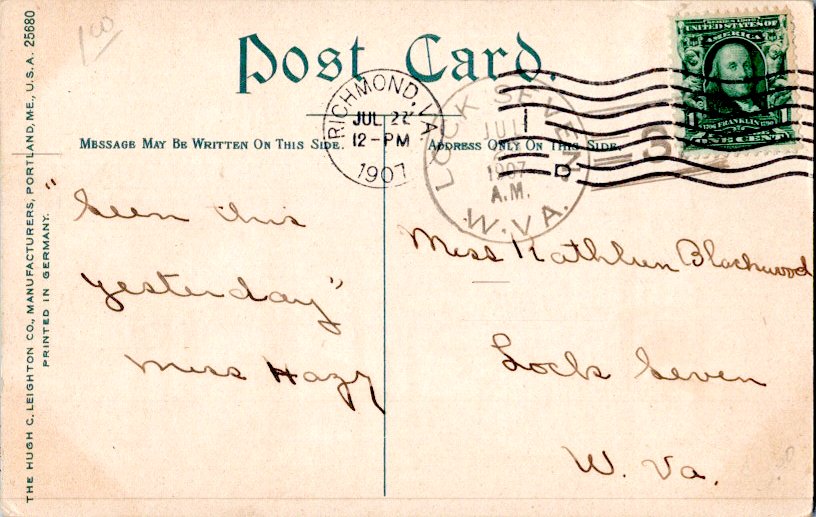 1 00
Post Card.
RICHMOND, VA.
JUL 22
12-PM
1907
LOCK SEVEN
JUL
1907
A.M.
W. VA.
3
UNITED STATES OF
AMERICA
1 FRANKLIN 1
ONE CENT
D
MESSAGE MAY BE WRITTEN ON THIS SIDE.
ADDRESS ONLY ON THIS SIDE.
"Seen this
yesterday"
Miss Hazy
Miss Kathleen Blackwood
Locks Seven
W. Va.
THE HUGH C. LEIGHTON CO., MANUFACTURERS, PORTLAND, ME., U.S.A. 25680
PRINTED IN GERMANY.